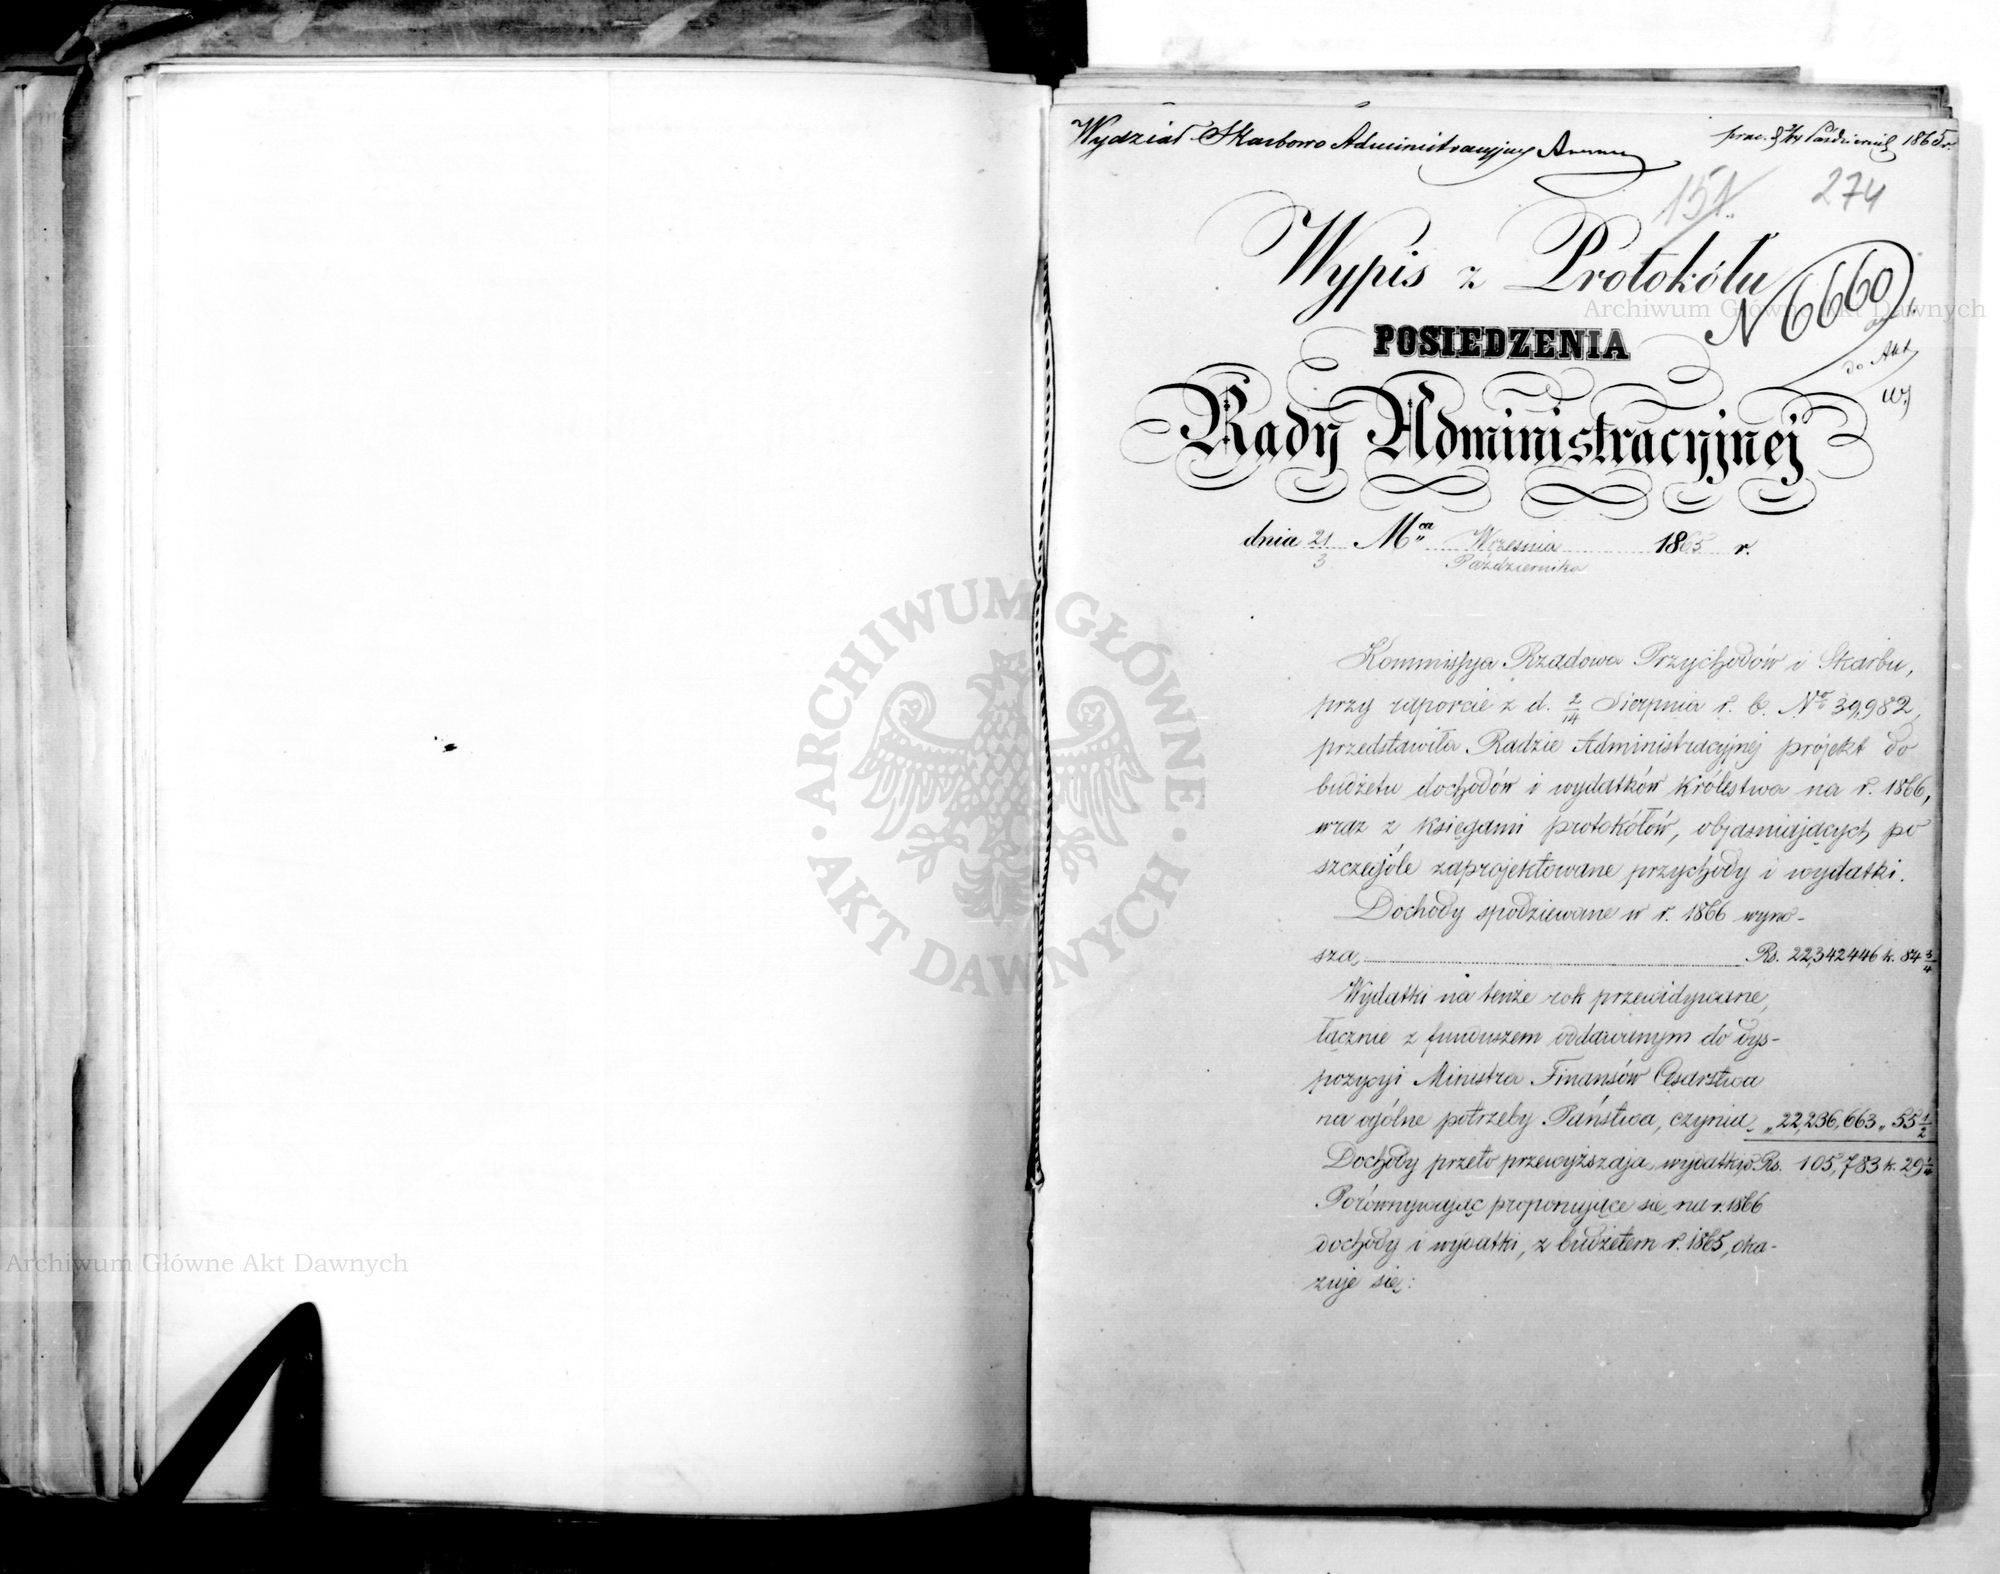 Wydział Skarbowo Administracyjny
Października 1865 r.
151
274
Wypis z Protokółu
N 6660
POSIEDZENIA
do Akt
Rady Administracyjnej
dnia 21/3 Mca Września/Października 1865 r.
Kommissya Rządowa Przychodów i Skarbu,
przy raporcie z d. 2/14 Sierpnia r. b. No 39,982,
przedstawiła Radzie Administracyjnej projekt do
budżetu dochodów i wydatków Królestwa na r. 1866,
wraz z księgami protokółów, objaśniających po
szczególe zaprojektowane przychody i wydatki.
Dochody spodziewane w r. 1866 wyno-
szą Rs. 22,342446 k. 84 3/4
Wydatki na tenże rok przewidywane,
łącznie z funduszem oddawanym do dys-
pozycyi Ministra Finansów Cesarstwa
na ogólne potrzeby Państwa, czynią „22,236,663 „ 55 1/2
Dochody przeto przewyższają wydatki o Rs. 105,783 k. 29 1/4
Porównywając proponujące się na r. 1866
dochody i wydatki, z budżetem r. 1865, oka-
zuje się:
Archiwum Główne Akt Dawnych
ARCHIWUM GŁÓWNE · AKT DAWNYCH ·
Archiwum Główne Akt Dawnych